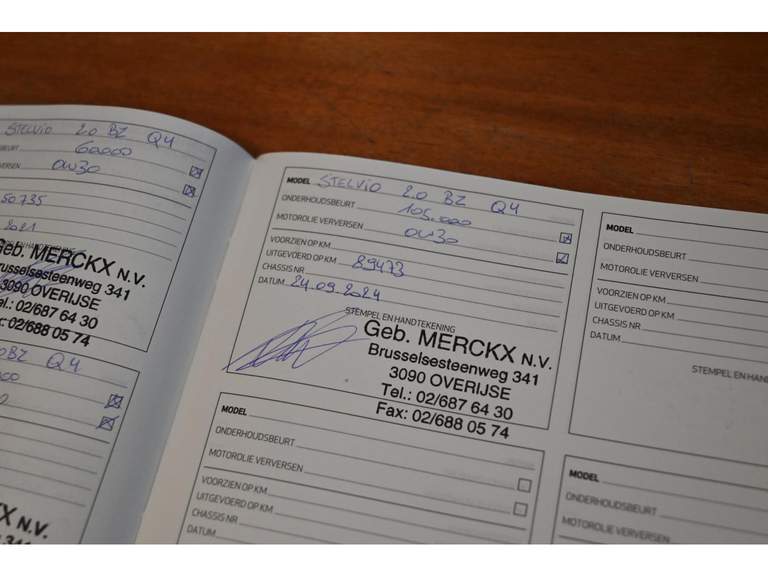 STELVIO 2.0 BZ Q4
60000
VERSEN OW30
50.735
2021
Geb. MERCKX N.V.
Brusselsesteenweg 341
3090 OVERIJSE
Tel.: 02/687 64 30
Fax: 02/688 05 74
BZ Q4
MODEL STELVIO 2.0 BZ Q4
ONDERHOUDSBEURT 105.000
MOTOROLIE VERVERSEN OW30
VOORZIEN OP KM
UITGEVOERD OP KM 89473
CHASSIS NR
DATUM 24.09.2024
STEMPEL EN HANDTEKENING
Geb. MERCKX N.V.
Brusselsesteenweg 341
3090 OVERIJSE
Tel.: 02/687 64 30
Fax: 02/688 05 74
MODEL
ONDERHOUDSBEURT
MOTOROLIE VERVERSEN
VOORZIEN OP KM
UITGEVOERD OP KM
CHASSIS NR
DATUM
MODEL
ONDERHOUDSBEURT
MOTOROLIE VERVERSEN
VOORZIEN OP KM
UITGEVOERD OP KM
CHASSIS NR
DATUM
STEMPEL EN HAND
MODEL
ONDERHOUDSBEURT
MOTOROLIE VERVERSEN